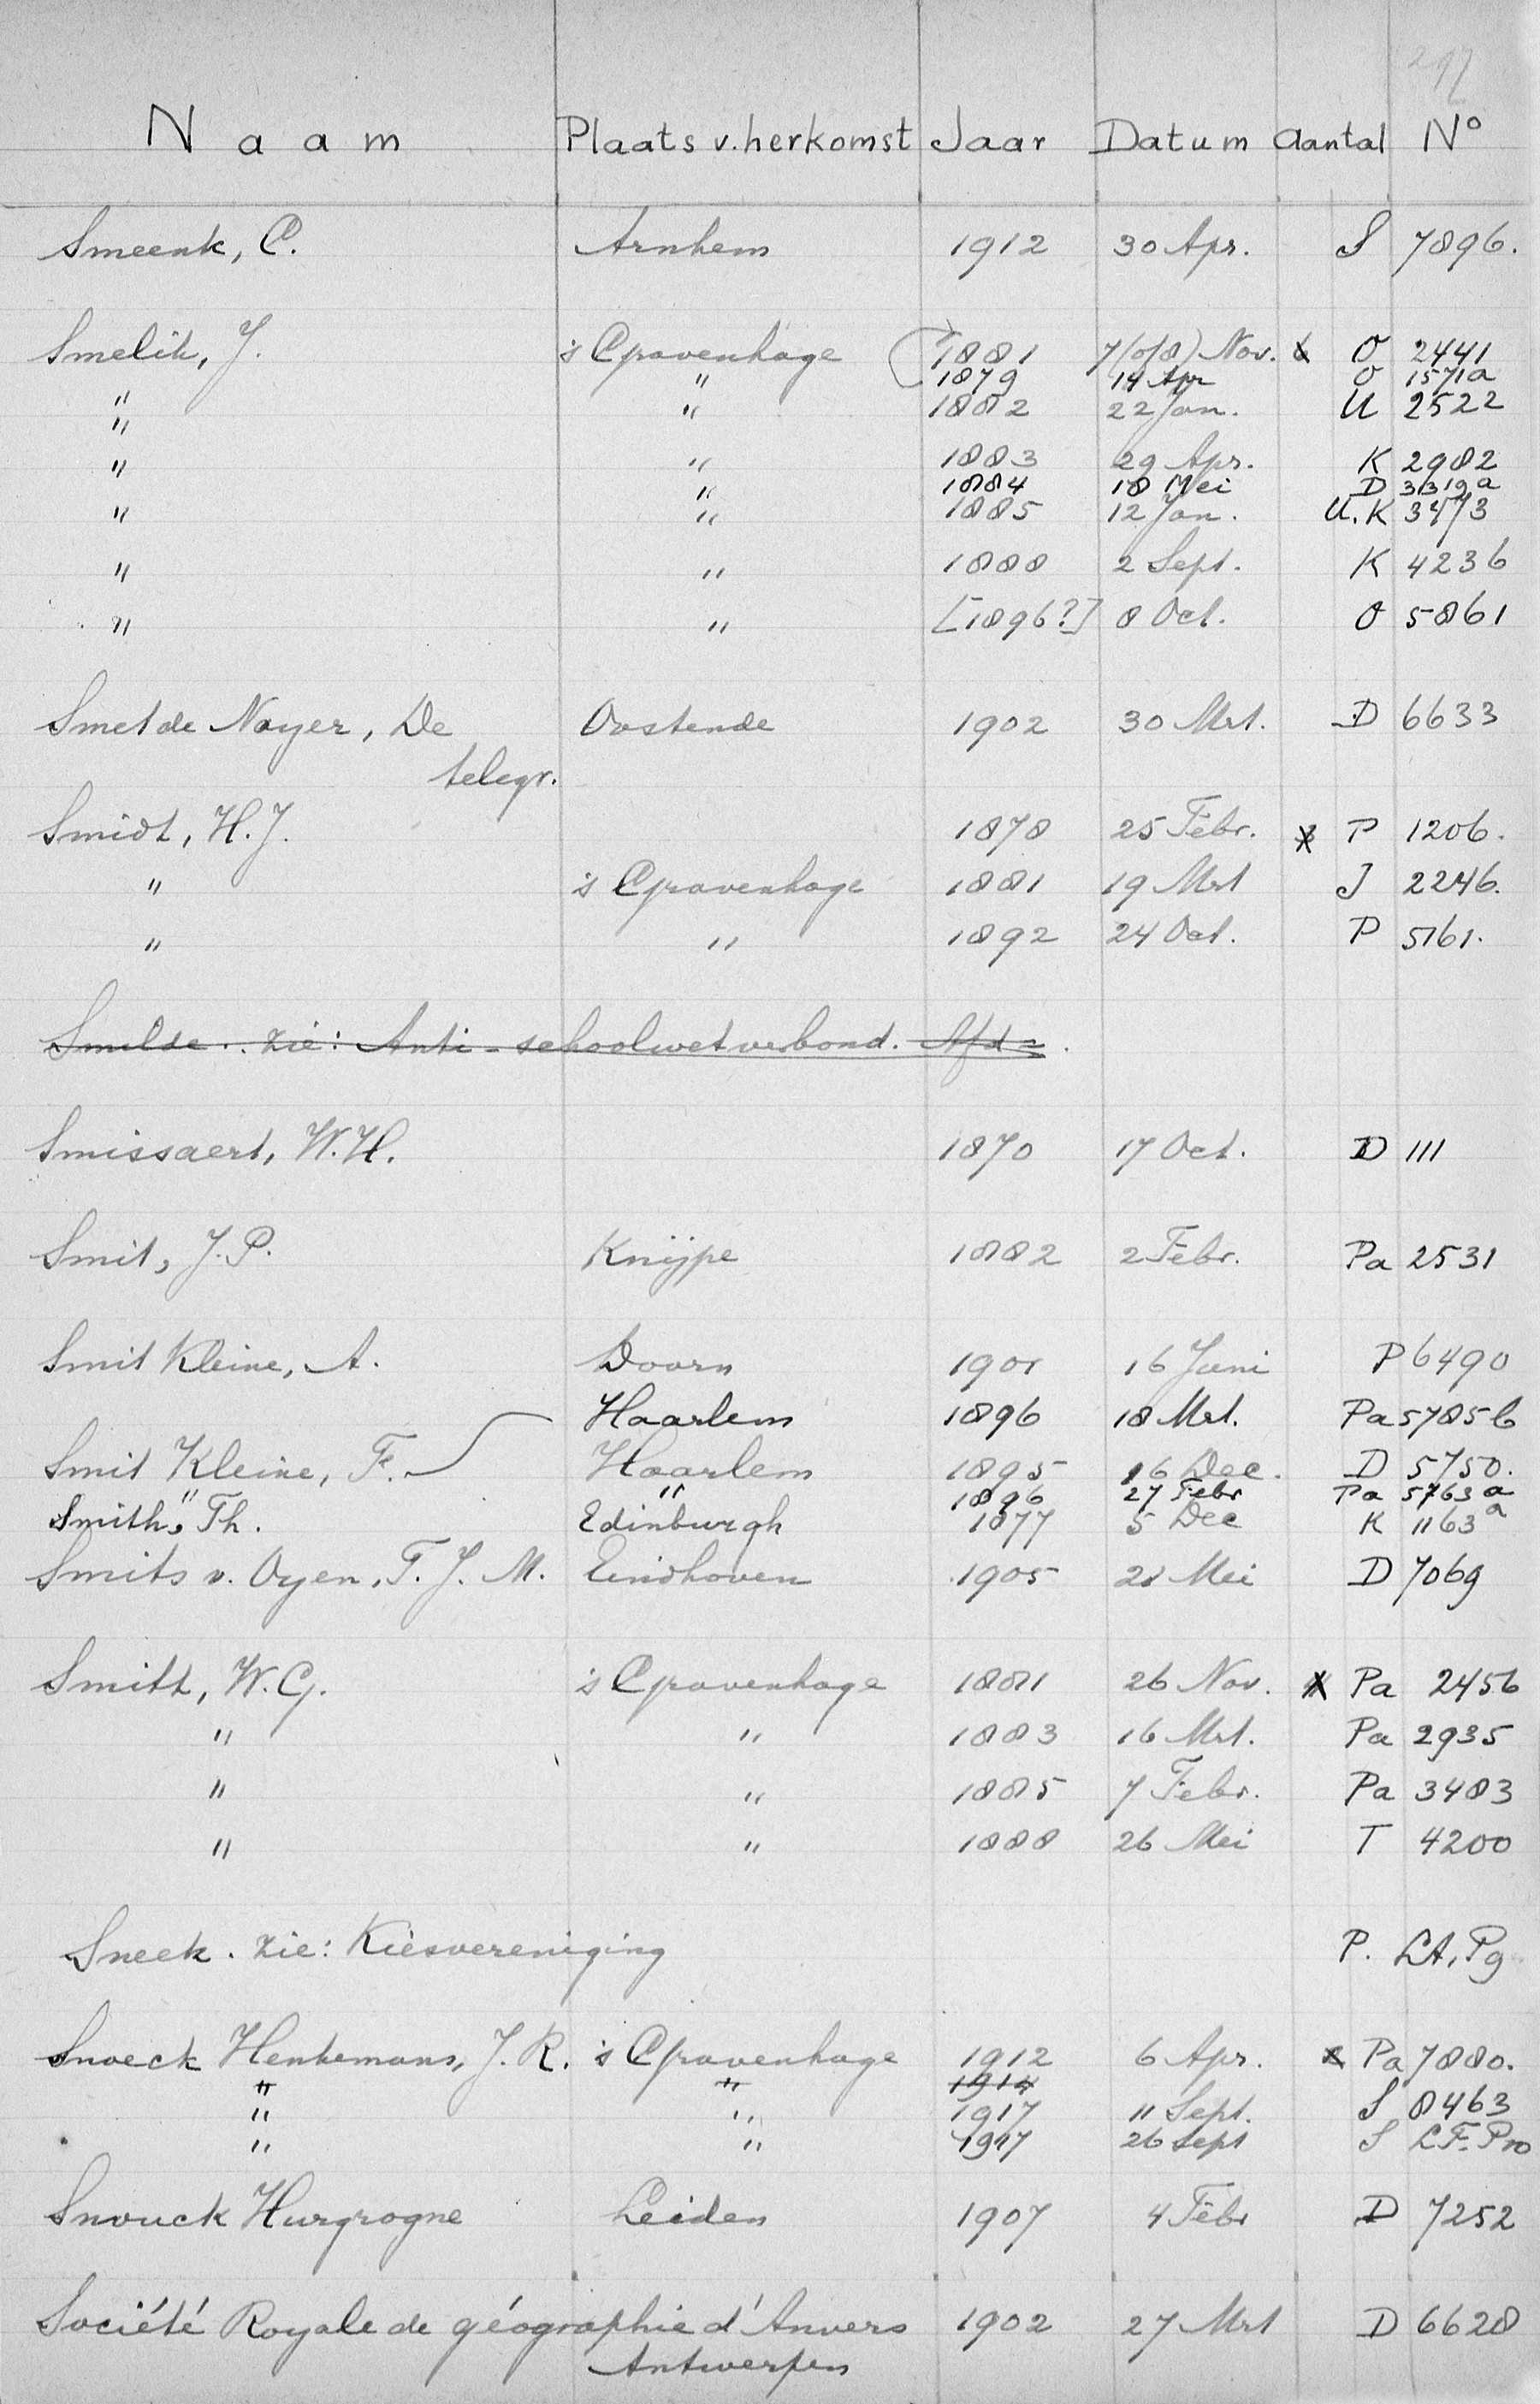 297
Naam Plaats v. herkomst Jaar Datum Aantal No
Smeenk, C. Arnhem 1912 30 Apr. S 7896.
Smelik, J. 's Gravenhage 1881 7(of 8) Nov. O 2441
" " 1879 14 Apr O 1571a
" " 1882 22 Jan. U 2522
" " 1883 29 Apr. K 2982
" 1884 18 Mei D 3319a
" " 1885 12 Jan. U.K 3473
" " 1888 2 Sept. K 4236
" " [1896?] 8 Oct. O 5861
Smet de Nayer, De Oostende 1902 30 Mrt. D 6633
telegr.
Smidt, H.J. 1878 25 Febr. P 1206.
" 's Gravenhage 1881 19 Mrt J 2246.
" " 1892 24 Oct. P 5161.
Smilde. zie: Anti-schoolwetverbond. Afd =.
Smissaert, W.H. 1870 17 Oct. D 111
Smit, J.P. Knijpe 1882 2 Febr. Pa 2531
Smit Kleine, A. Doorn 1901 16 Juni P 6490
Haarlem 1896 18 Mrt. Pa 5785b
Smit Kleine, F. Haarlem 1895 16 Dec. D 5750.
" " 1896 27 Febr Pa 5763a
Smith, Th. Edinburgh 1877 5 Dec K 1163a
Smits v. Oyen, F.J.M. Eindhoven 1905 21 Mei D 7069
Smitt, W.G. 's Gravenhage 1881 26 Nov. Pa 2456
" " 1883 16 Mrt. Pa 2935
" " 1885 7 Febr. Pa 3483
" " 1888 26 Mei T 4200
Sneek. zie: Kiesvereniging P. LA, Pg
Snoeck Henkemans, J.R. 's Gravenhage 1912 6 Apr. Pa 7880.
" " 1914
" " 1917 11 Sept. S 8463
" " 1917 26 sept S LF. Pro
Snouck Hurgrogne Leiden 1907 4 Febr D 7252
Société Royale de géographie d'Anvers 1902 27 Mrt D 6628
Antwerpen